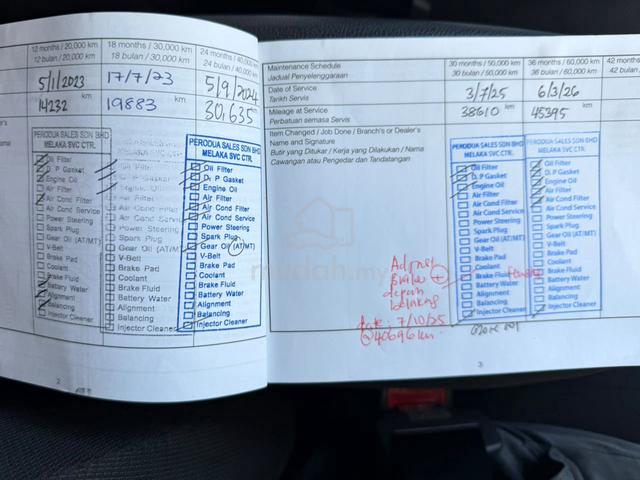 12 months / 20,000 km 18 months / 30,000 km 24 months / 40,000 km
12 bulan / 20,000 km 18 bulan / 30,000 km 24 bulan / 40,000 km
5/1/2023 17/7/23 5/9/2024
14232 km 19883 km 30,635 km
PERODUA SALES SDN BHD
MELAKA SVC CTR.
Oil Filter
D. P Gasket
Engine Oil
Air Filter
Air Cond Filter
Air Cond Service
Power Steering
Spark Plug
Gear Oil (AT/MT)
V-Belt
Brake Pad
Coolant
Brake Fluid
Battery Water
Alignment
Balancing
Injector Cleaner
Oil Filter
D. P Gasket
Engine Oil
Air Filter
Air Cond Filter
Air Cond Service
Power Steering
Spark Plug
Gear Oil (AT/MT)
V-Belt
Brake Pad
Coolant
Brake Fluid
Battery Water
Alignment
Balancing
Injector Cleaner
PERODUA SALES SDN BHD
MELAKA SVC CTR.
Oil Filter
D. P Gasket
Engine Oil
Air Filter
Air Cond Filter
Air Cond Service
Power Steering
Spark Plug
Gear Oil (AT/MT)
V-Belt
Brake Pad
Coolant
Brake Fluid
Battery Water
Alignment
Balancing
Injector Cleaner
2
Maintenance Schedule
Jadual Penyelenggaraan
30 months / 50,000 km 36 months / 60,000 km 42 months
30 bulan / 50,000 km 36 bulan / 60,000 km 42 bulan
Date of Service
Tarikh Servis
3/7/25 6/3/26
Mileage at Servis
Perbatuan semasa Servis
38610 km 45395 km
Item Changed / Job Done / Branch's or Dealer's
Name and Signature
Butir yang Ditukar / Kerja yang Dilakukan / Nama
Cawangan atau Pengedar dan Tandatangan
PERODUA SALES SDN BHD
MELAKA SVC CTR.
Oil Filter
D. P Gasket
Engine Oil
Air Filter
Air Cond Filter
Air Cond Service
Power Steering
Spark Plug
Gear Oil (AT/MT)
V-Belt
Brake Pad
Coolant
Brake Fluid
Battery Water
Alignment
Balancing
Injector Cleaner
PERODUA SALES SDN BHD
MELAKA SVC CTR.
Oil Filter
D. P Gasket
Engine Oil
Air Filter
Air Cond Filter
Air Cond Service
Power Steering
Spark Plug
Gear Oil (AT/MT)
V-Belt
Brake Pad
Coolant
Brake Fluid
Battery Water
Alignment
Balancing
Injector Cleaner
Adjust
Brake
depan
belakang
date: 7/10/25
@40696km.
3